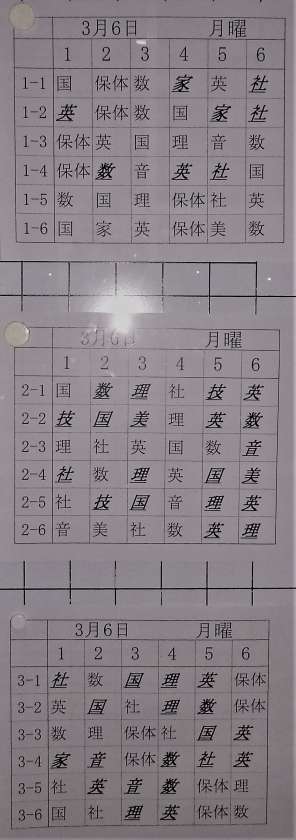 3月6日 月曜
1 2 3 4 5 6
1-1 国 保体 数 家 英 社
1-2 英 保体 数 国 家 社
1-3 保体 英 国 理 音 数
1-4 保体 数 音 英 社 国
1-5 数 国 理 保体 社 英
1-6 国 家 英 保体 美 数
3月6日 月曜
1 2 3 4 5 6
2-1 国 数 理 社 技 英
2-2 技 国 美 理 英 数
2-3 理 社 英 国 数 音
2-4 社 数 理 英 国 美
2-5 社 技 国 音 理 英
2-6 音 美 社 数 英 理
3月6日 月曜
1 2 3 4 5 6
3-1 社 数 国 理 英 保体
3-2 英 国 社 理 数 保体
3-3 数 理 保体 社 国 英
3-4 家 音 保体 数 社 英
3-5 社 英 音 数 保体 理
3-6 国 社 理 英 保体 数